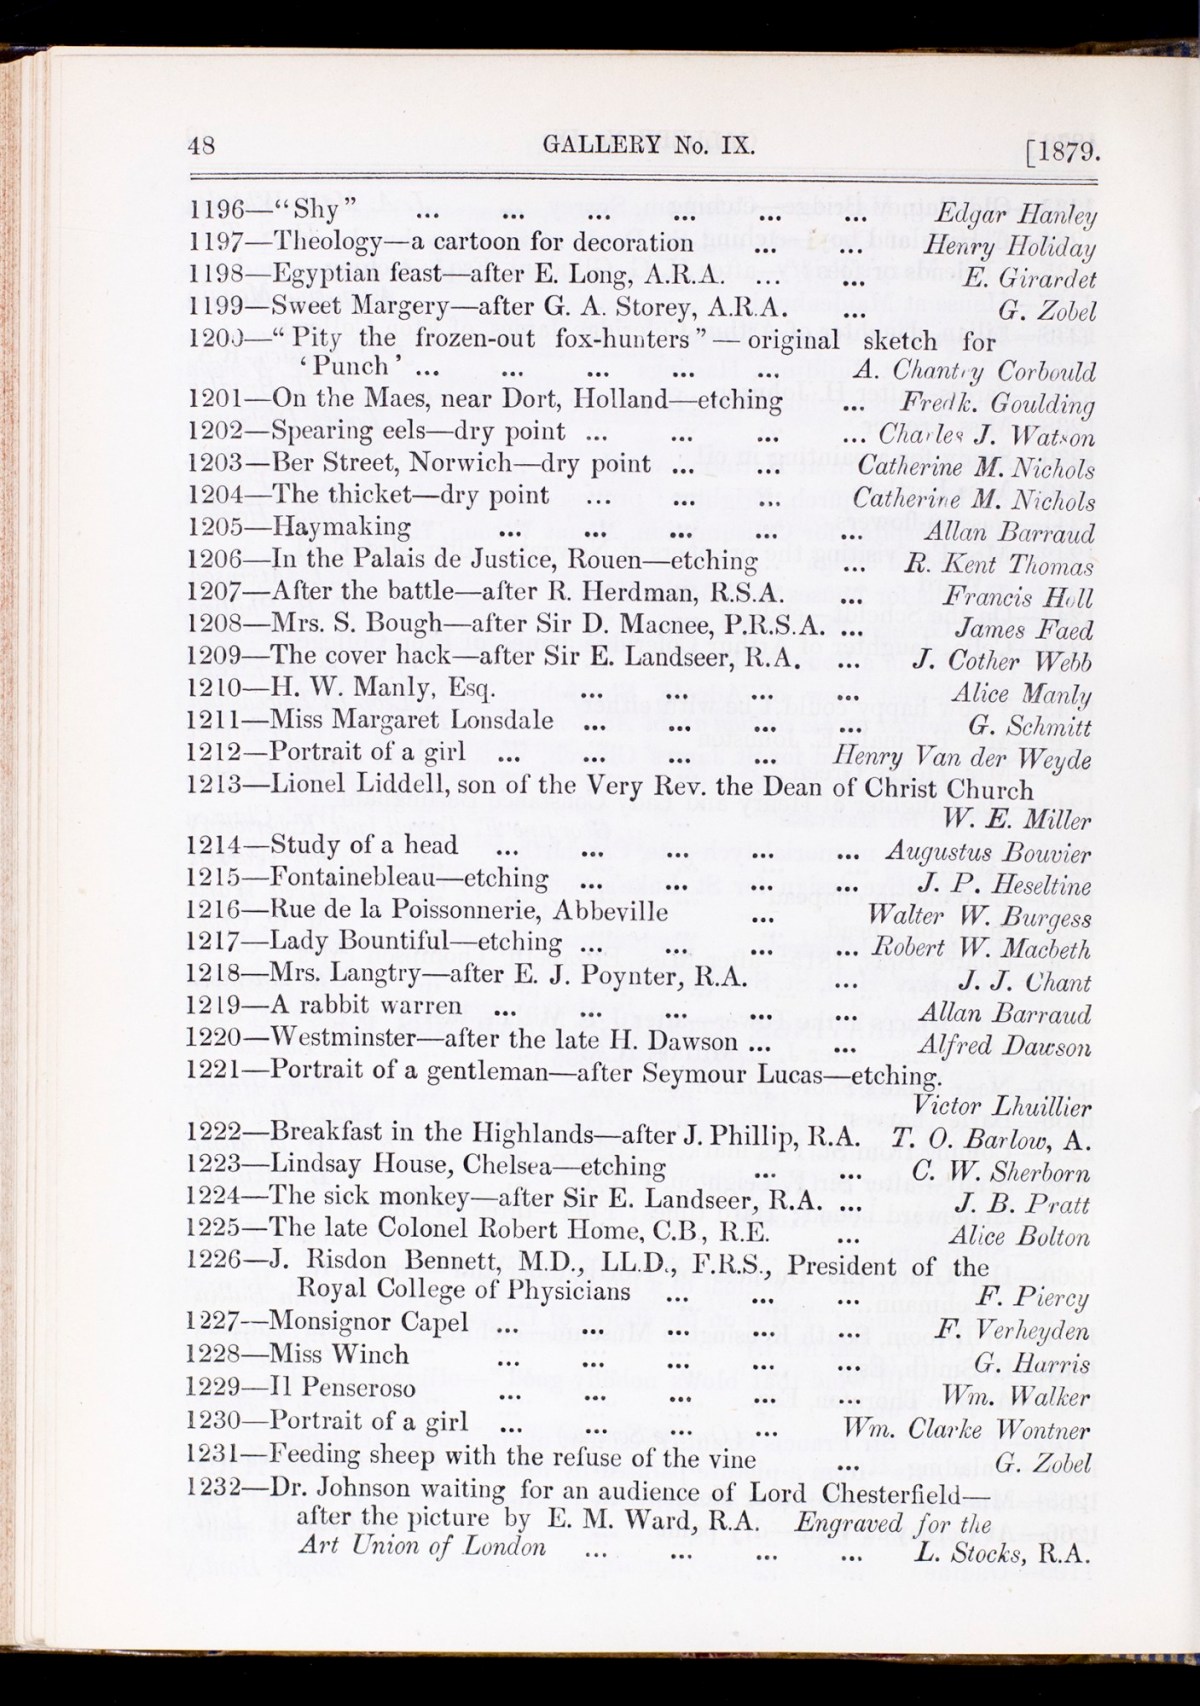 48 GALLERY No. IX. [1879.
1196—“Shy” ... ... ... ... ... ... Edgar Hanley
1197—Theology—a cartoon for decoration ... ... Henry Holiday
1198—Egyptian feast—after E. Long, A.R.A. ... ... E. Girardet
1199—Sweet Margery—after G. A. Storey, A.R.A. ... G. Zobel
1200—“Pity the frozen-out fox-hunters”—original sketch for
‘Punch’ ... ... ... ... ... A. Chantry Corbould
1201—On the Maes, near Dort, Holland—etching ... Fredk. Goulding
1202—Spearing eels—dry point ... ... ... ... Charles J. Watson
1203—Ber Street, Norwich—dry point ... ... Catherine M. Nichols
1204—The thicket—dry point ... ... ... Catherine M. Nichols
1205—Haymaking ... ... ... ... ... Allan Barraud
1206—In the Palais de Justice, Rouen—etching ... R. Kent Thomas
1207—After the battle—after R. Herdman, R.S.A. ... Francis Holl
1208—Mrs. S. Bough—after Sir D. Macnee, P.R.S.A. ... James Faed
1209—The cover hack—after Sir E. Landseer, R.A. ... J. Cother Webb
1210—H. W. Manly, Esq. ... ... ... ... Alice Manly
1211—Miss Margaret Lonsdale ... ... ... ... G. Schmitt
1212—Portrait of a girl ... ... ... ... Henry Van der Weyde
1213—Lionel Liddell, son of the Very Rev. the Dean of Christ Church
W. E. Miller
1214—Study of a head ... ... ... ... ... Augustus Bouvier
1215—Fontainebleau—etching ... ... ... ... J. P. Heseltine
1216—Rue de la Poissonnerie, Abbeville ... Walter W. Burgess
1217—Lady Bountiful—etching ... ... ... ... Robert W. Macbeth
1218—Mrs. Langtry—after E. J. Poynter, R.A. ... J. J. Chant
1219—A rabbit warren ... ... ... ... ... Allan Barraud
1220—Westminster—after the late H. Dawson ... ... Alfred Dawson
1221—Portrait of a gentleman—after Seymour Lucas—etching.
Victor Lhuillier
1222—Breakfast in the Highlands—after J. Phillip, R.A. T. O. Barlow, A.
1223—Lindsay House, Chelsea—etching ... ... C. W. Sherborn
1224—The sick monkey—after Sir E. Landseer, R.A. ... J. B. Pratt
1225—The late Colonel Robert Home, C.B, R.E. ... Alice Bolton
1226—J. Risdon Bennett, M.D., LL.D., F.R.S., President of the
Royal College of Physicians ... ... ... F. Piercy
1227—Monsignor Capel ... ... ... ... ... F. Verheyden
1228—Miss Winch ... ... ... ... ... G. Harris
1229—Il Penseroso ... ... ... ... ... Wm. Walker
1230—Portrait of a girl ... ... ... ... Wm. Clarke Wontner
1231—Feeding sheep with the refuse of the vine ... G. Zobel
1232—Dr. Johnson waiting for an audience of Lord Chesterfield—
after the picture by E. M. Ward, R.A. Engraved for the
Art Union of London ... ... ... ... L. Stocks, R.A.